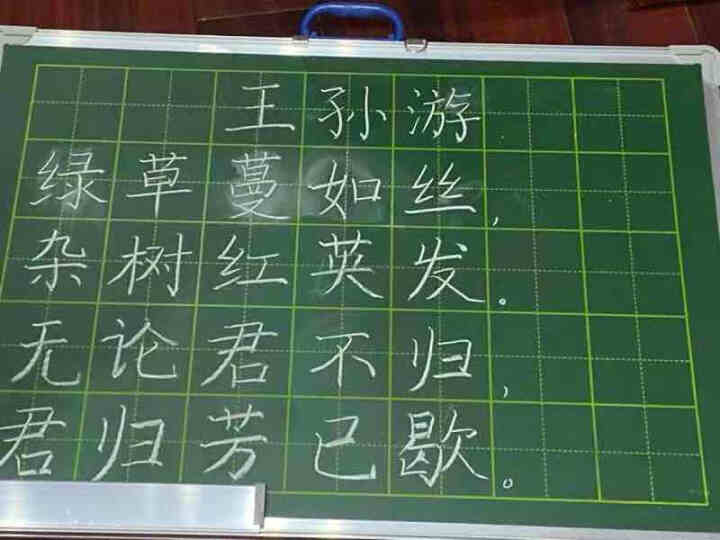 王孙游
绿草蔓如丝,
杂树红英发。
无论君不归,
君归芳已歇。